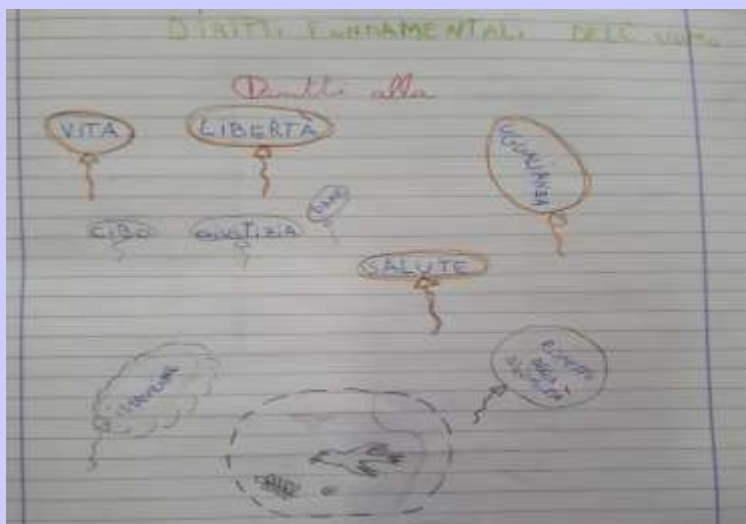 DIRITTI FONDAMENTALI DELL'UOMO
Diritti alla
VITA
LIBERTÀ
UGUALIANZA
CIBO
GIUSTIZIA
SALUTE
ISTRUZIONE